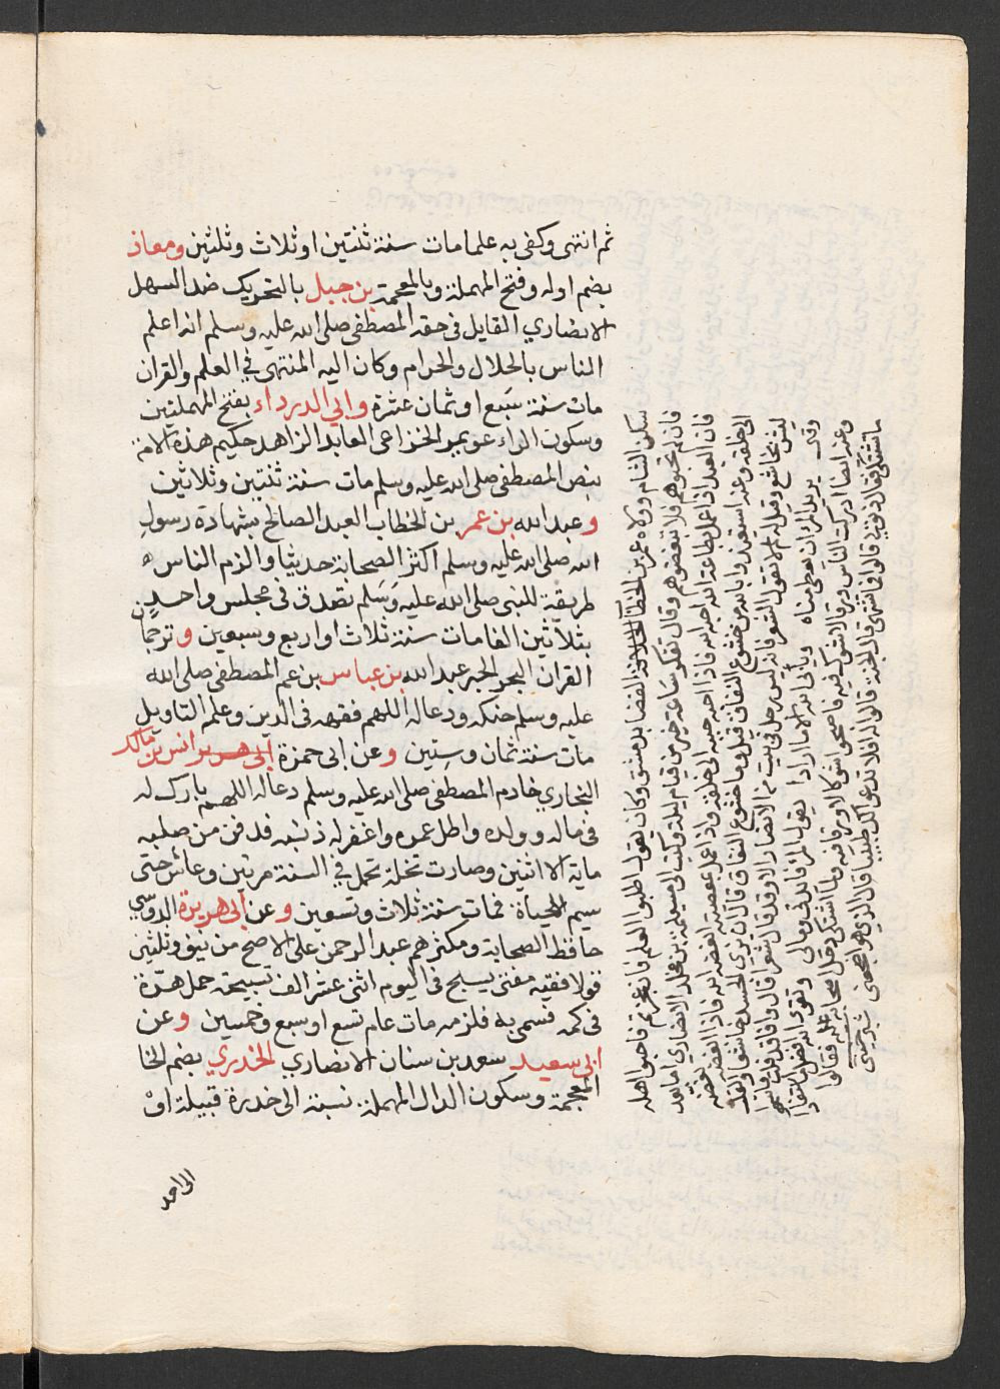 ثم انتهى وكفى به علما مات سنة ثنتين او ثلاث وثلثين ومعاذ
بضم اوله وفتح المهملة وبالمعجمة بن جبل بالتحريك ضد السهل
الانصاري القايل في حقه المصطفى صلى الله عليه وسلم انه اعلم
الناس بالحلال والحرام وكان اليه المنتهى في العلم والقران
مات سنة سبع او ثمان عشرة وابي الدرداء بفتح المهملتين
وسكون الراء عويمر الخزاعى العابد الزاهد حكيم هذه الامة
بنص المصطفى صلى الله عليه وسلم مات سنة ثنتين وثلاثين
وعبد الله بن عمر بن الخطاب العبد الصالح بشهادة رسول
الله صلى الله عليه وسلم اكثر الصحابة حديثا والزم الناس
طريقة للنبي صلى الله عليه وسلم تصدق في مجلس واحد
بثلاثين الفا مات سنة ثلاث او اربع وسبعين وترجمان
القران البحر الحبر عبد الله بن عباس بن عم المصطفى صلى الله
عليه وسلم حنكه ودعا له اللهم فقهه في الدين وعلم التاويل
مات سنة ثمان وستين وعن ابي حمزة انس بن مالك
النجاري خادم المصطفى صلى الله عليه وسلم دعا له اللهم بارك له
في ماله وولده واطل عمره واغفر له ذنبه فدفن من صلبه
ماية الا اثنين وصارت نخلة تحمل في السنة مرتين وعاش حتى
سيم الحياة فمات سنة ثلاث وتسعين وعن ابي هريرة الدوسي
حافظ الصحابة ومكثرهم عبد الرحمن على الاصح من نيف وثلثين
قولا فقيه مفتى يسبح في اليوم اثنى عشر الف تسبيحة حمل هرة
في كمه فسمى به فلزمه مات عام تسع او سبع وخمسين وعن
ابي سعيد سعد بن سنان الانصاري الخدري بضم الخا
المعجمة وسكون الدال المهملة نسبة الى خدرة قبيلة او
سكن الشام وولاه عمر بن الخطاب القضا بدمشق وكان يقول اطلبوا العلم فان عجزتم فاحبوا اهله
فان لم تحبوهم فلا تبغضوهم وقال تفكر ساعة خير من قيام ليلة وكتب الى مسلمة بن مخلد الانصاري اما بعد
فان العبد اذا عمل بطاعة الله احبه الله فاذا احبه حببه الى خلقه واذا عمل بمعصية ابغضه الله فاذا ابغضه بغضه
الى خلقه وعنه استعيذوا بالله من خشوع النفاق قيل وما خشوع النفاق قال ان يرى الجسد خاشعا والقلب
ليس بخاشع وقيل له لم لا تقول الشعر فانه ليس رجل في بيت من الانصار الا وقد قال شعرا قال وانا قد قلت
يريد المرء ان يعطى مناه ويأبى الله الا ما ارادا يقول المرء فايدتي ومالي وتقوى الله افضل ما استفادا
وعنه ايضا ادركت الناس ورقا لا شوك فيه فاصبحوا شوكا لا ورق فيه ولما اشتكى دخل اصحابه عليه فقالوا
ما تشتكي فقال ذنوبي قالوا فما تشتهي قال الجنة قالوا له افلا ندعوا لك طبيبا قال الذي هو اضجعني